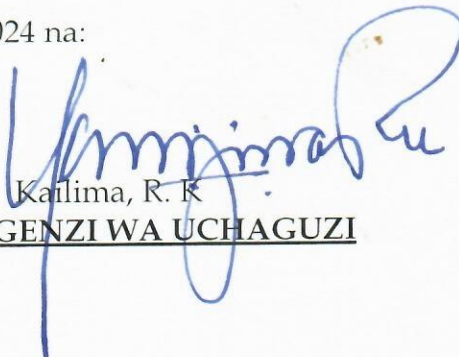 024 na:
Kailima, R. K
GENZI WA UCHAGUZI